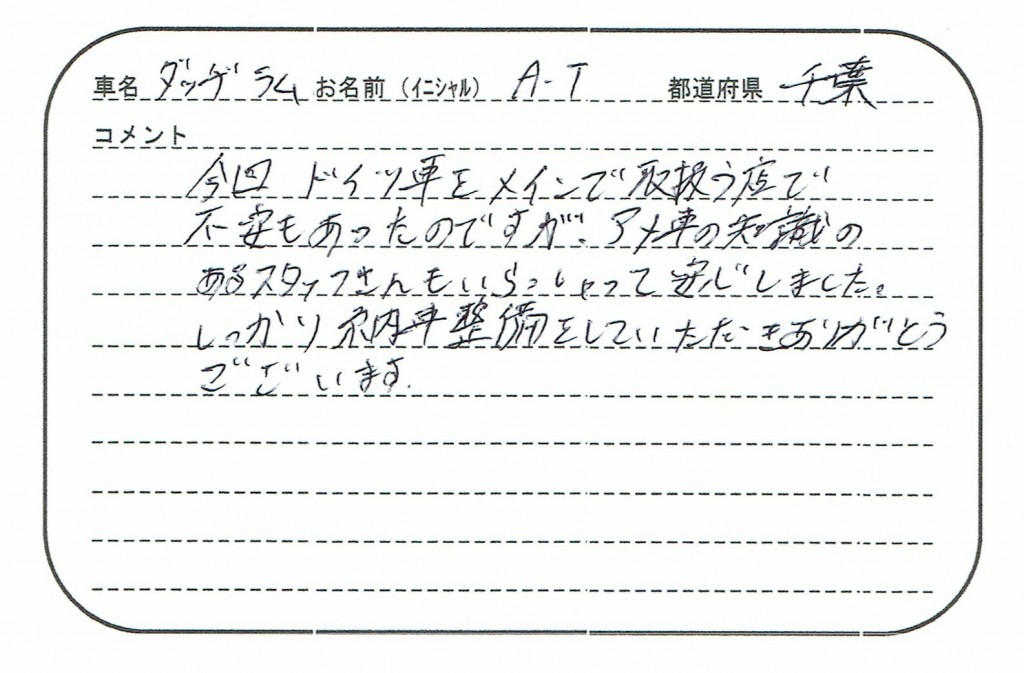 車名 ダッヂ ラム お名前（イニシャル） A-T 都道府県 千葉
コメント
今回 ドイツ車をメインで取扱う店で
不安もあったのですが、アメ車の知識の
あるスタッフさんもいらっしゃって安心しました。
しっかり納車整備をしていただきありがとう
ございます.